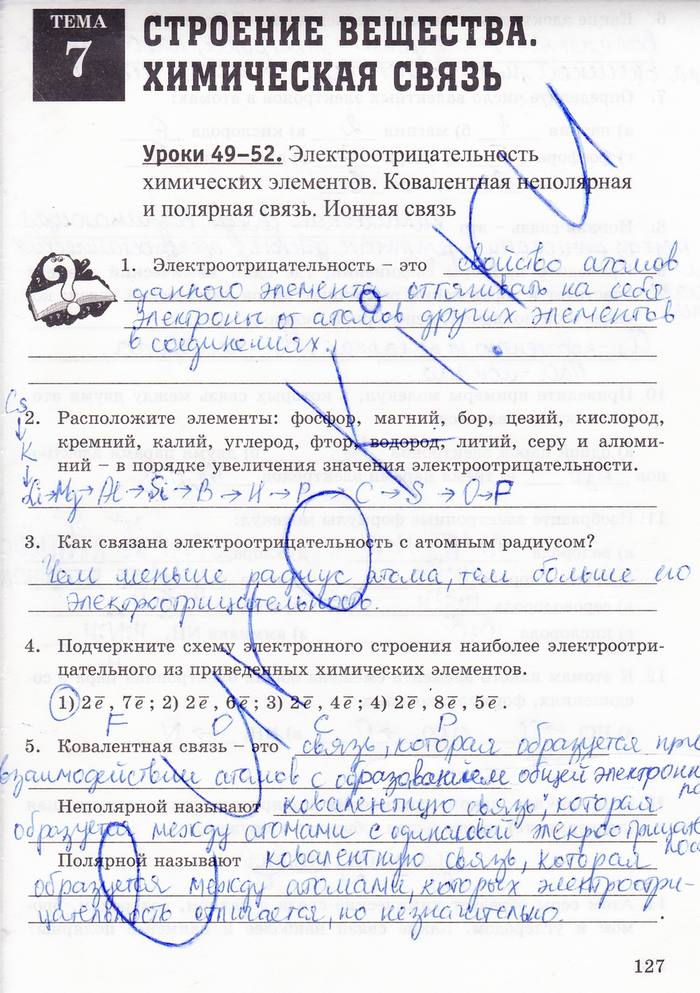 ТЕМА
7
СТРОЕНИЕ ВЕЩЕСТВА.
ХИМИЧЕСКАЯ СВЯЗЬ
Уроки 49–52. Электроотрицательность
химических элементов. Ковалентная неполярная
и полярная связь. Ионная связь
1. Электроотрицательность – это свойство атомов
данного элемента оттягивать на себя
электроны от атомов других элементов
в соединениях.
2. Расположите элементы: фосфор, магний, бор, цезий, кислород,
кремний, калий, углерод, фтор, водород, литий, серу и алюми-
ний – в порядке увеличения значения электроотрицательности.
Cs
↓
K
↓
Li→Mg→Al→Si→B→H→P→C→S→O→F
3. Как связана электроотрицательность с атомным радиусом?
Чем меньше радиус атома, тем больше его
электроотрицательность.
4. Подчеркните схему электронного строения наиболее электроотри-
цательного из приведенных химических элементов.
1) 2e̅, 7e̅; 2) 2e̅, 6e̅; 3) 2e̅, 4e̅; 4) 2e̅, 8e̅, 5e̅.
F O C P
5. Ковалентная связь – это связь, которая образуется при
взаимодействии атомов с образованием общей электронной
Неполярной называют ковалентную связь, которая
образуется между атомами с одинаковой
Полярной называют ковалентную связь, которая
образуется между атомами, которых электроотри-
цательность отличается, но незначительно.
127